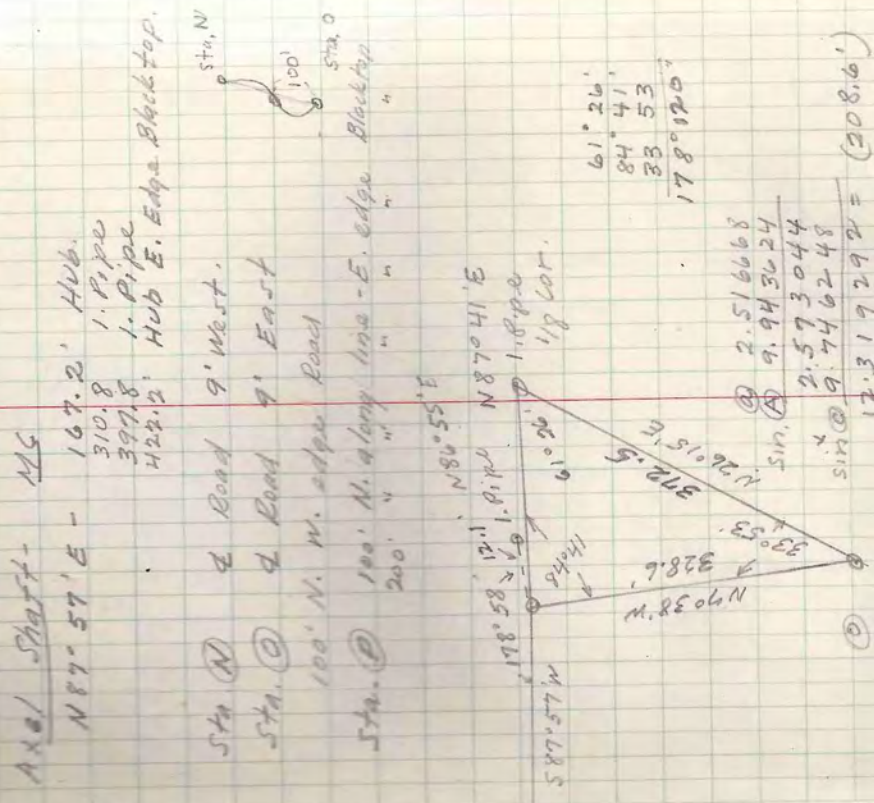 Axel Shaft - MC
N 87° 57' E - 167.2' Hub.
310.8 I. Pipe
397.8 I. Pipe
422.2' Hub E. Edge Blacktop.
Sta. N ₵ Road 9' West.
Sta. O ₵ Road 9' East
100' N. W. edge Road
Sta. P 100' N. along line - E. edge Blacktop
200' " " " " " "
Sta. N
100'
Sta. O
N 86° 55' E
178° 58' 12.1 I. Pipe N 87° 41' E
I. Pipe
1/8 Cor.
S 87° 57' W
84° 41'
61° 26'
N 7° 38' W
328.6'
372.5
N 26° 15' E
33° 53'
O
61° 26'
84° 41'
33 53
178° 120'
a 2.516668
sin. A 9.943624
2.573044
sin O 9.746248
12.319292 = (208.6')